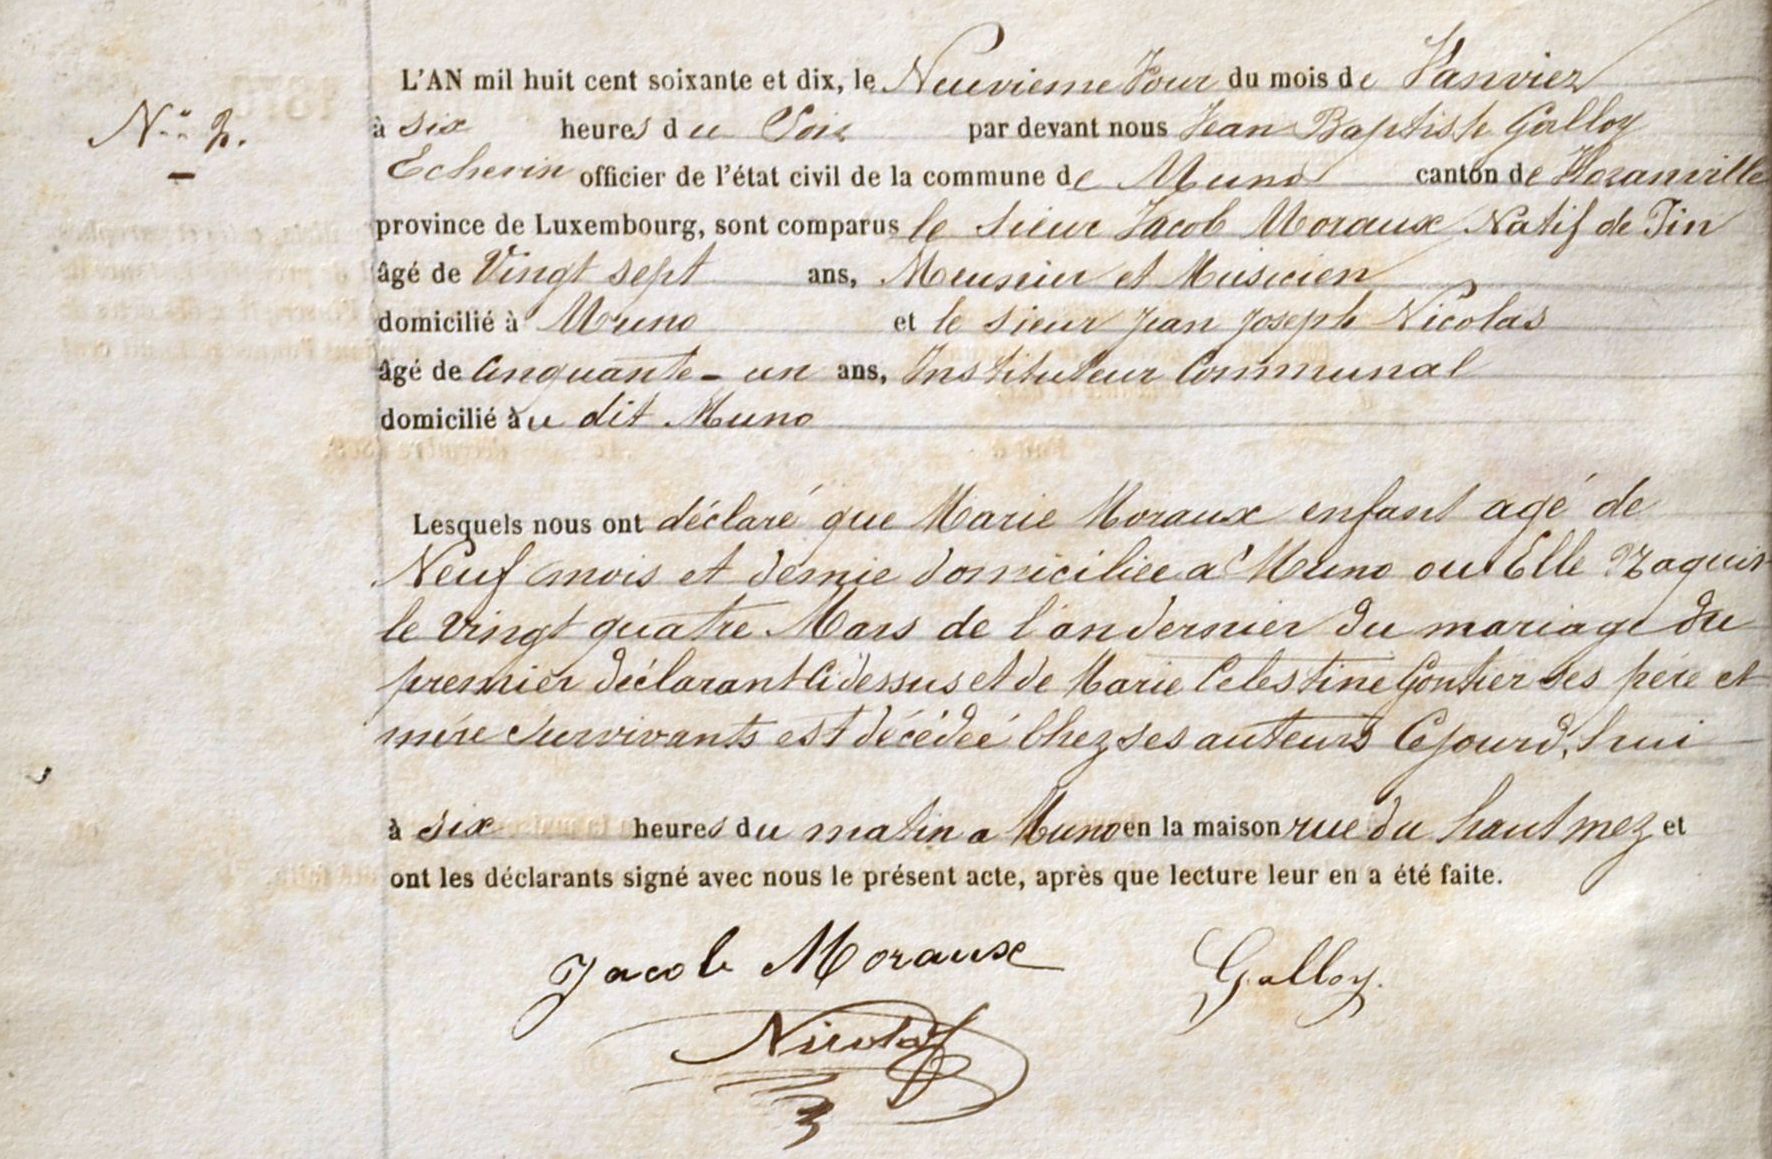 L'AN mil huit cent soixante et dix, le Neuvieme Jour du mois de Janvier
N° 2. à six heures du Soir par devant nous Jean Baptiste Galloy
Echevin officier de l'état civil de la commune de Muno canton de Floranville
province de Luxembourg, sont comparus le sieur Jacob Moraux Natif de Tin
âgé de Vingt sept ans, Meunier et Musicien
domicilié à Muno et le sieur Jean Joseph Nicolas
âgé de Cinquante-un ans, Instituteur Communal
domicilié au dit Muno
Lesquels nous ont déclaré que Marie Moraux enfant agé de
Neuf mois et demie domiciliée a Muno ou Elle Naquit
le vingt quatre Mars de l'an dernier du mariage du
premier déclarant Ci dessus et de Marie Celestine Gontier ses père et
mère survivants est décédeé Chez ses auteurs Cejourd'hui
à six heures du matin a Muno en la maison rue du haut mez et
ont les déclarants signé avec nous le présent acte, après que lecture leur en a été faite.
Jacob Moraux Galloy.
Nicolas